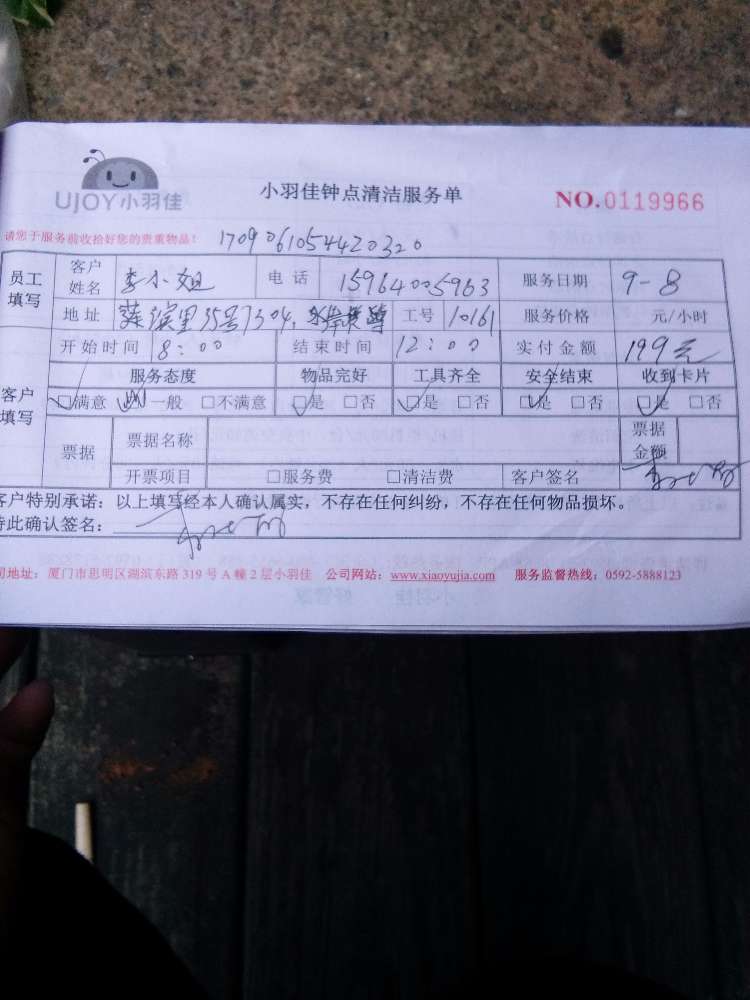 UJOY小羽佳
小羽佳钟点清洁服务单
NO.0119966
请您于服务前收拾好您的贵重物品! 1709061054420320
员工填写 客户姓名 李小姐 电话 15964005963 服务日期 9-8
地址 莲滨里35号7304, 工号 10161 服务价格 元/小时
开始时间 8:00 结束时间 12:00 实付金额 199元
客户填写 服务态度 物品完好 工具齐全 安全结束 收到卡片
□满意 一般 □不满意 □是 □否 □是 □否 □是 □否 □是 □否
票据 票据名称 票据金额
开票项目 □服务费 □清洁费 客户签名
客户特别承诺:以上填写经本人确认属实,不存在任何纠纷,不存在任何物品损坏。
特此确认签名:
司地址:厦门市思明区湖滨东路 319 号 A 幢 2 层小羽佳 公司网站:www.xiaoyujia.com 服务监督热线:0592-5888123